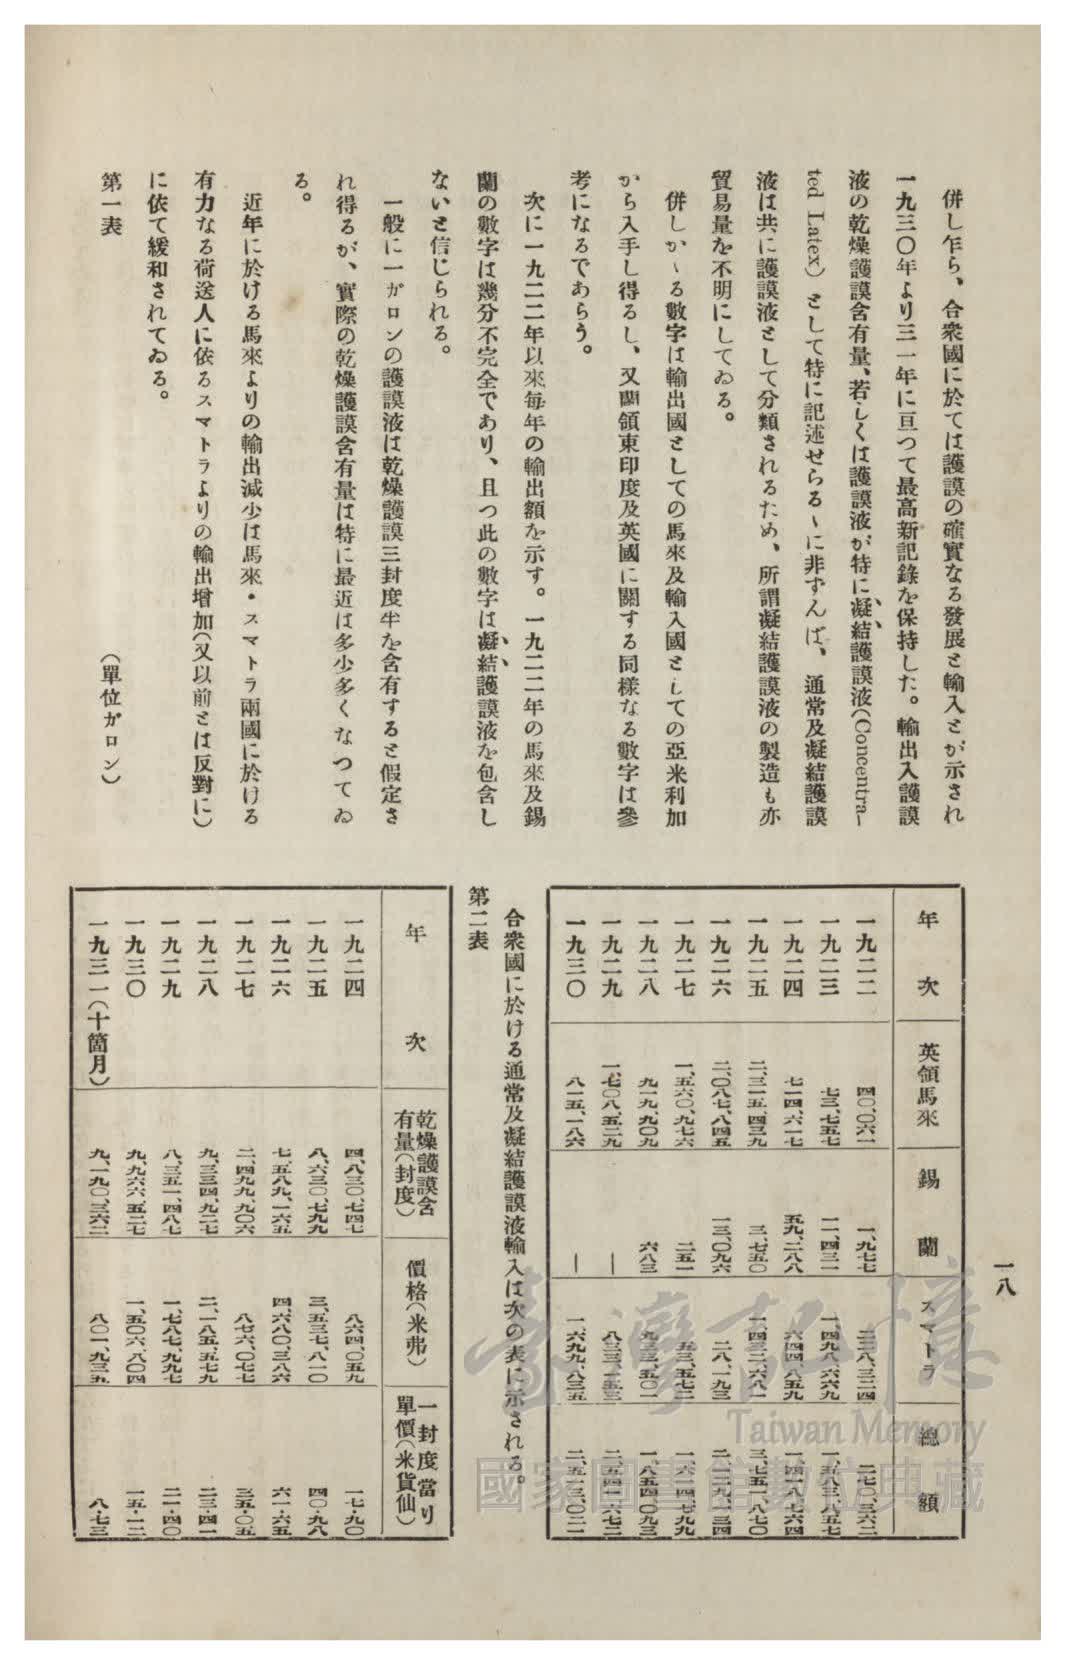 併し乍ら、合衆國に於ては護謨の確實なる發展と輸入とが示され
一九三〇年より三一年に亘つて最高新記錄を保持した。輸出入護謨
液の乾燥護謨含有量、若しくは護謨液が特に凝結護謨液(Concentra-
ted Latex)として特に記述せらるゝに非ずんば、通常及凝結護謨
液は共に護謨液として分類されるため、所謂凝結護謨液の製造も亦
貿易量を不明にしてゐる。
併しかゝる數字は輸出國としての馬來及輸入國としての亞米利加
から入手し得るし、又蘭領東印度及英國に關する同樣なる數字は參
考になるであらう。
次に一九二二年以來每年の輸出額を示す。一九二二年の馬來及錫
蘭の數字は幾分不完全であり、且つ此の數字は凝結護謨液を包含し
ないと信じられる。
一般に一ガロンの護謨液は乾燥護謨三封度半を含有すると假定さ
れ得るが、實際の乾燥護謨含有量は特に最近は多少多くなつてゐ
る。
近年に於ける馬來よりの輸出減少は馬來・スマトラ兩國に於ける
有力なる荷送人に依るスマトラよりの輸出增加(又以前とは反對に)
に依て緩和されてゐる。
第一表 (單位ガロン)
年次 英領馬來 錫蘭 スマトラ 總額
一九二二 四〇、〇六一 一、九七七 二二八、三二四 二七〇、三六二
一九二三 七三、七五七 一一、四三一 一、四九八、六六九 一、五八三、八五七
一九二四 七一四、六一七 五九、二八八 六四四、八五九 一、四一八、七六四
一九二五 二、三一五、四三九 三、七五〇 一、四三二、六八一 三、七五一、八七〇
一九二六 二、〇八七、八四五 一三、〇九六 二八、一九三 二、一二九、一三四
一九二七 一、五六〇、九七六 二五一 五三、五七二 一、六一四、七九九
一九二八 九一九、九〇九 六八三 九三三、五〇一 一、八五四、〇九三
一九二九 一、七〇八、五二九 — 八三三、一五三 二、五四一、六七二
一九三〇 八一五、一八六 — 一、六九九、八三五 二、五一三、〇二一
合衆國に於ける通常及凝結護謨液輸入は次の表に示される。
第二表
年次 乾燥護謨含有量(封度) 價格(米弗) 一封度當り單價(米貨仙)
一九二四 四、八三〇、七四七 八六四、〇五九 一七・九〇
一九二五 八、六三〇、七九九 三、五三七、八一〇 四〇・九八
一九二六 七、五八九、一六五 四、六八〇、三八六 六一・六五
一九二七 二、四九九、九〇六 八七六、〇七七 三五・〇五
一九二八 九、三三四、九二七 二、一八五、五七九 二三・四一
一九二九 八、三五一、四八七 一、七八七、九九七 二一・四〇
一九三〇 九、九六六、五二七 一、五〇六、八〇四 一五・一二
一九三一(十箇月) 九、一九〇、三六二 八〇一、九三五 八・七三
一八
臺灣記憶
Taiwan Memory
國家圖書館數位典藏